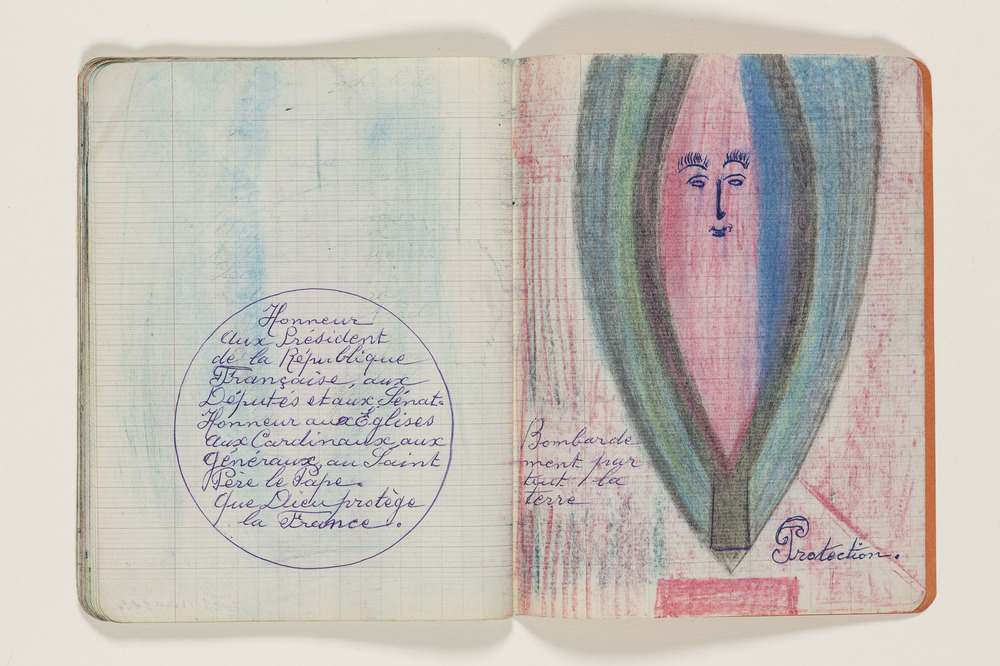 Honneur
aux Président
de la République
Française, aux
Députés et aux Sénat.
Honneur aux Églises
aux Cardinaux, aux
généraux, au Saint
Père le Pape.
que Dieu protège
la France.
Bombarde
ment par
tout / la
terre
Protection.